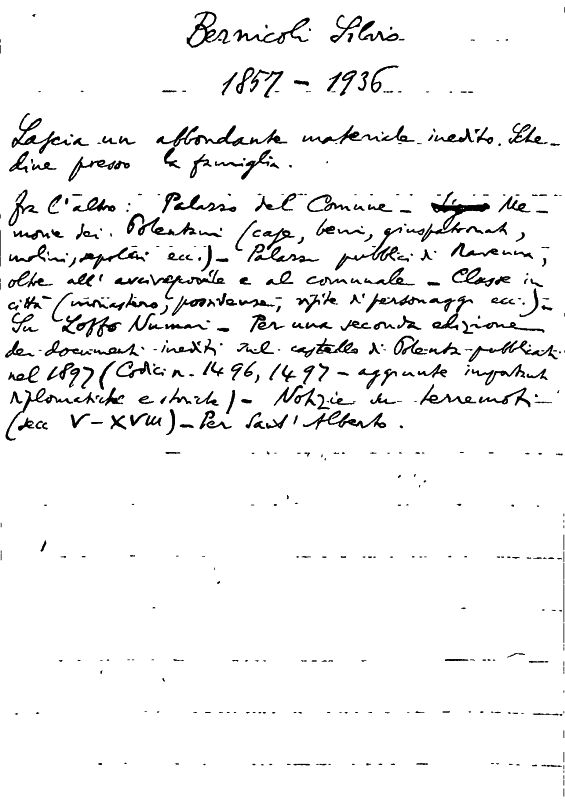 Bernicoli Silvio
1857 - 1936
Lascia un abbondante materiale inedito. Sche-
dine presso la famiglia.
fra l'altro: Palazzo del Comune - Me-
morie dei Polentani (case, beni, giuspatronati,
molini, sepolcri ecc.) - Palazzi pubblici di Ravenna,
oltre all'arcivescovile e al comunale - Classe in
città (monastero, possidenze, visite di personaggi ecc.) -
Su Loffo Numai - Per una seconda edizione
dei documenti inediti sul castello di Polenta pubblicati
nel 1897 (Codici n. 1496, 1497 - aggiunte importanti
diplomatiche e storiche) - Notizie su terremoti
(sec. V - XVIII) - Per Sant'Alberto.